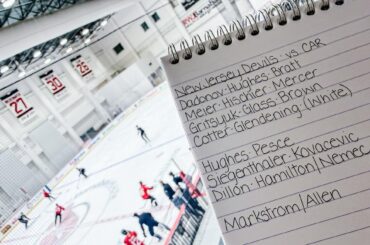 27
23
25
New Jersey Devils vs CAR
Dadonov-Hughes-Bratt
Meier-Hischier-Mercer
Gritsyuk-Glass-Brown
Cotter-Glendening-(White)
Hughes-Pesce
Siegenthaler-Kovacevic
Dillon-Hamilton/Nemec
Markstrom/Allen